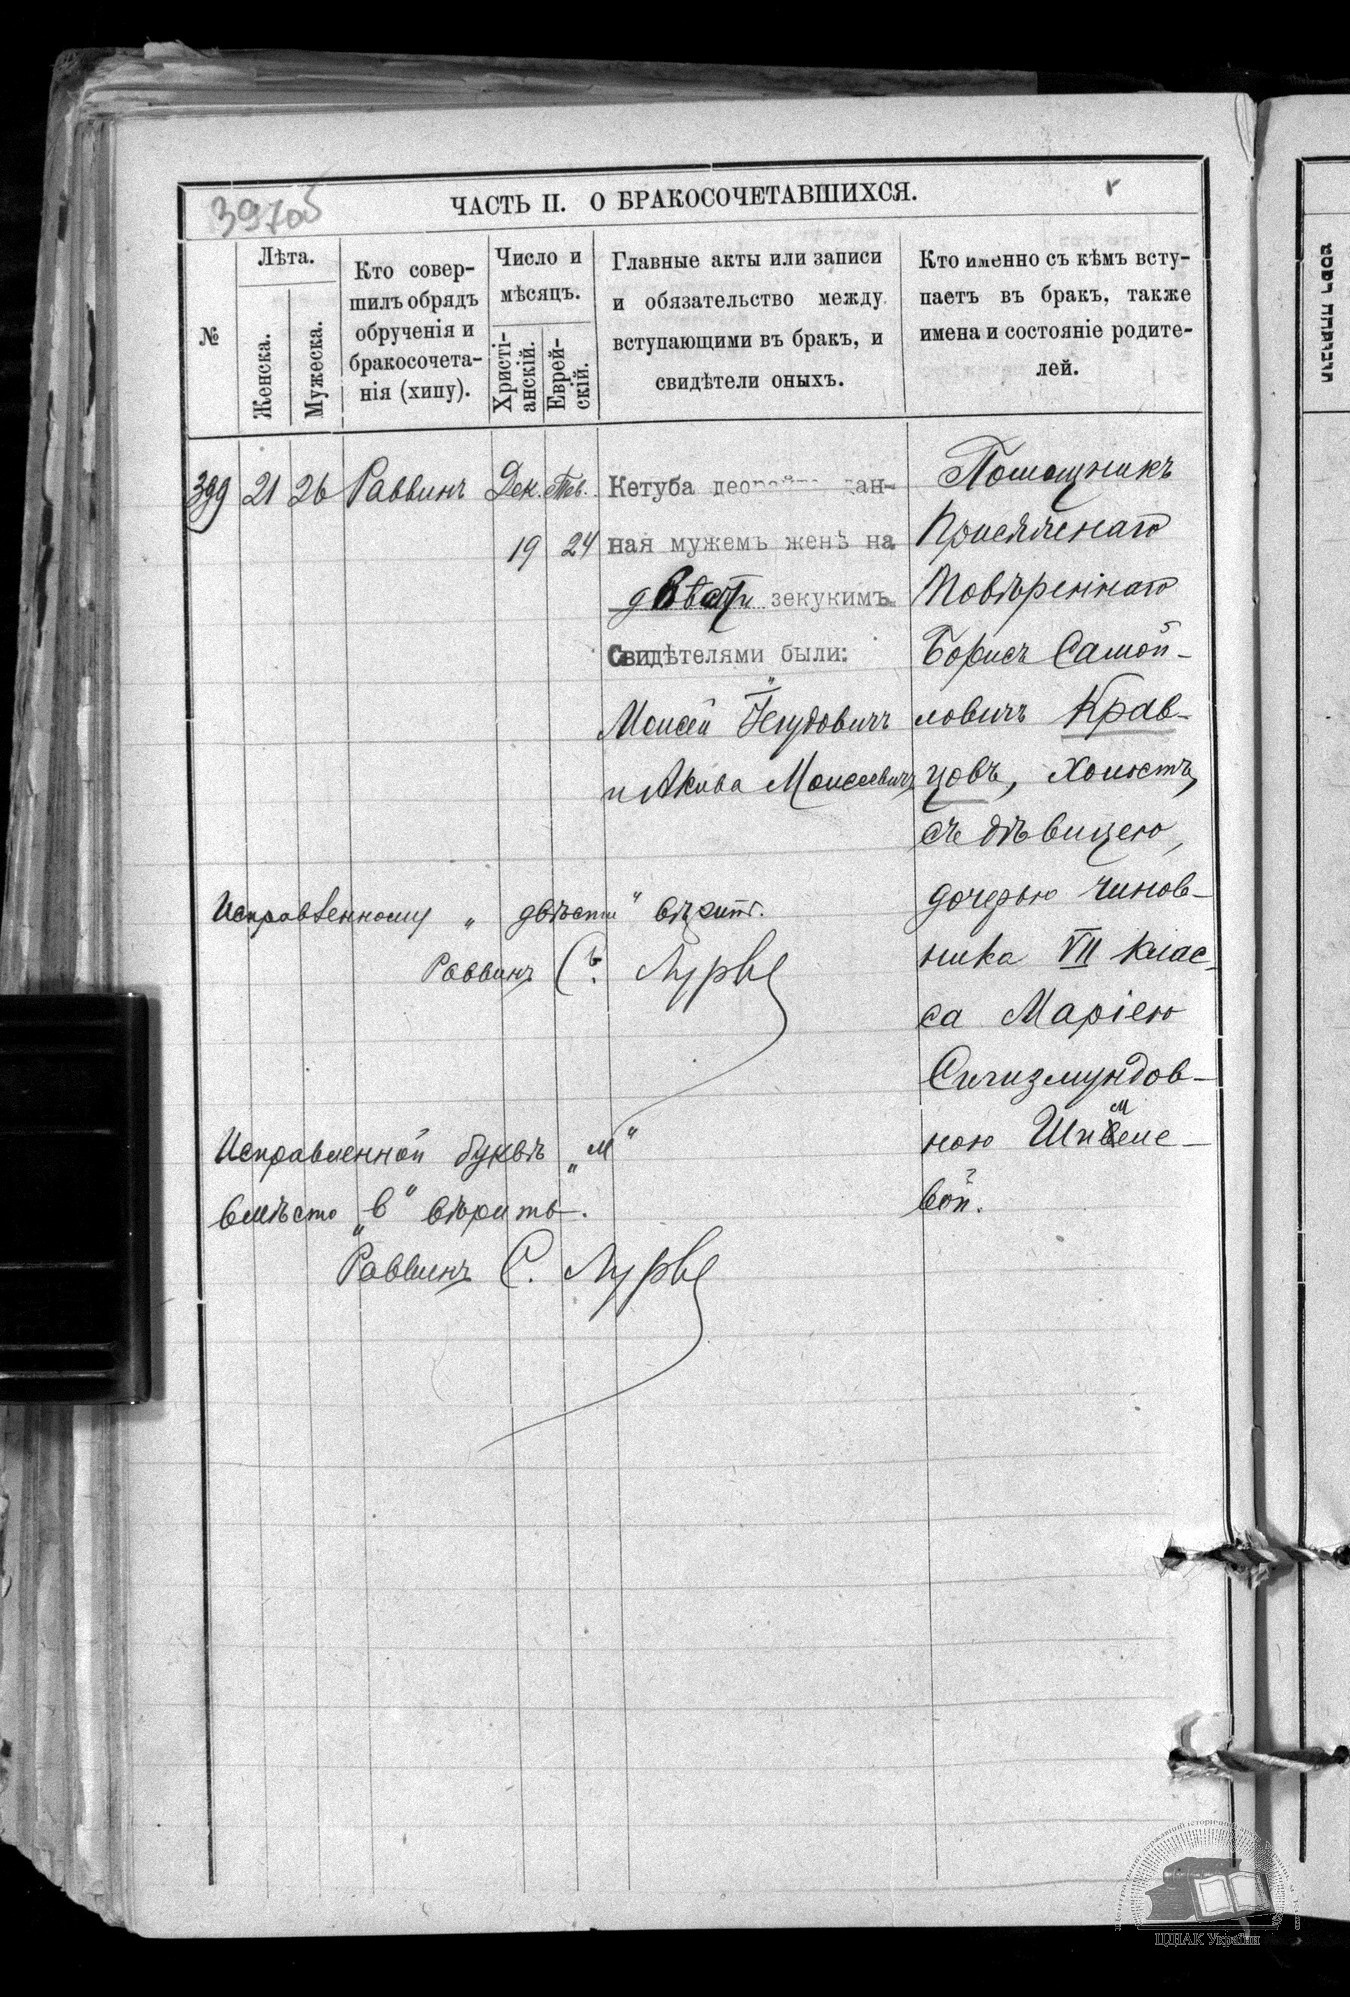 397об
ЧАСТЬ II. О БРАКОСОЧЕТАВШИХСЯ.
№
Лѣта.
Женска.
Мужеска.
Кто совер-
шилъ обрядъ
обрученія и
бракосочета-
нія (хипу).
Число и
мѣсяцъ.
Христі-
анскій.
Еврей-
скій.
Главные акты или записи
и обязательство между
вступающими въ бракъ, и
свидѣтели оныхъ.
Кто именно съ кѣмъ всту-
паетъ въ бракъ, также
имена и состояніе родите-
лей.
399 21 26 Раввинъ Дек. Тев.
19 24
Кетуба деорайта дан-
ная мужемъ женѣ на
двѣсти зекукимъ.
Свидѣтелями были:
Моисей Іегудовичъ
и Акива Моисеевичъ
Помощникъ
Присяжнаго
Повѣреннаго
Борисъ Самой-
ловичъ Крав-
цовъ, холостъ,
съ дѣвицею,
дочерью чинов-
ника VII клас-
са Маріею
Сигизмундов-
ною
вой.
Исправленному „двѣсти" вѣрить.
Раввинъ С. Лурье
Исправленной буквѣ „м"
вмѣсто „в" вѣрить.
Раввинъ С. Лурье
ЦДІАК України